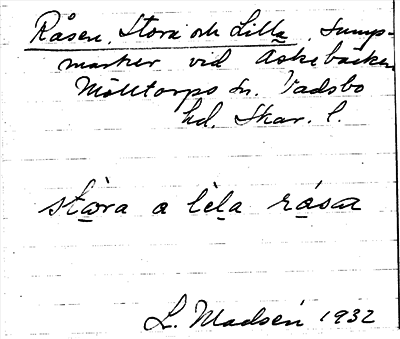 Råsen, Stora och Lilla, Sump-
marker vid Askebacken
Mölltorps sn. Vadsbo
hd. Skar. l.
stɷra a lɩla rɷsa
L. Madsén 1932